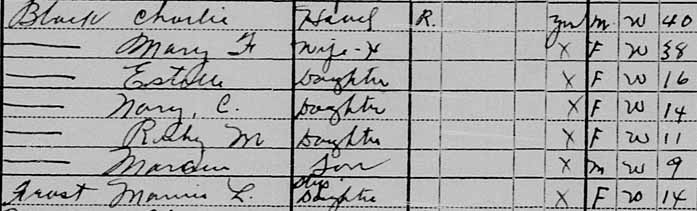 Black Charlie Head R. yes M W 40
— Mary F Wife-X X F W 38
— Estelle Daughter X F W 16
— Nary, C. Daughter X F W 14
— Ruby M Daughter X F W 11
— Son X M W 9
Frost L. Step Daughter X F W 14